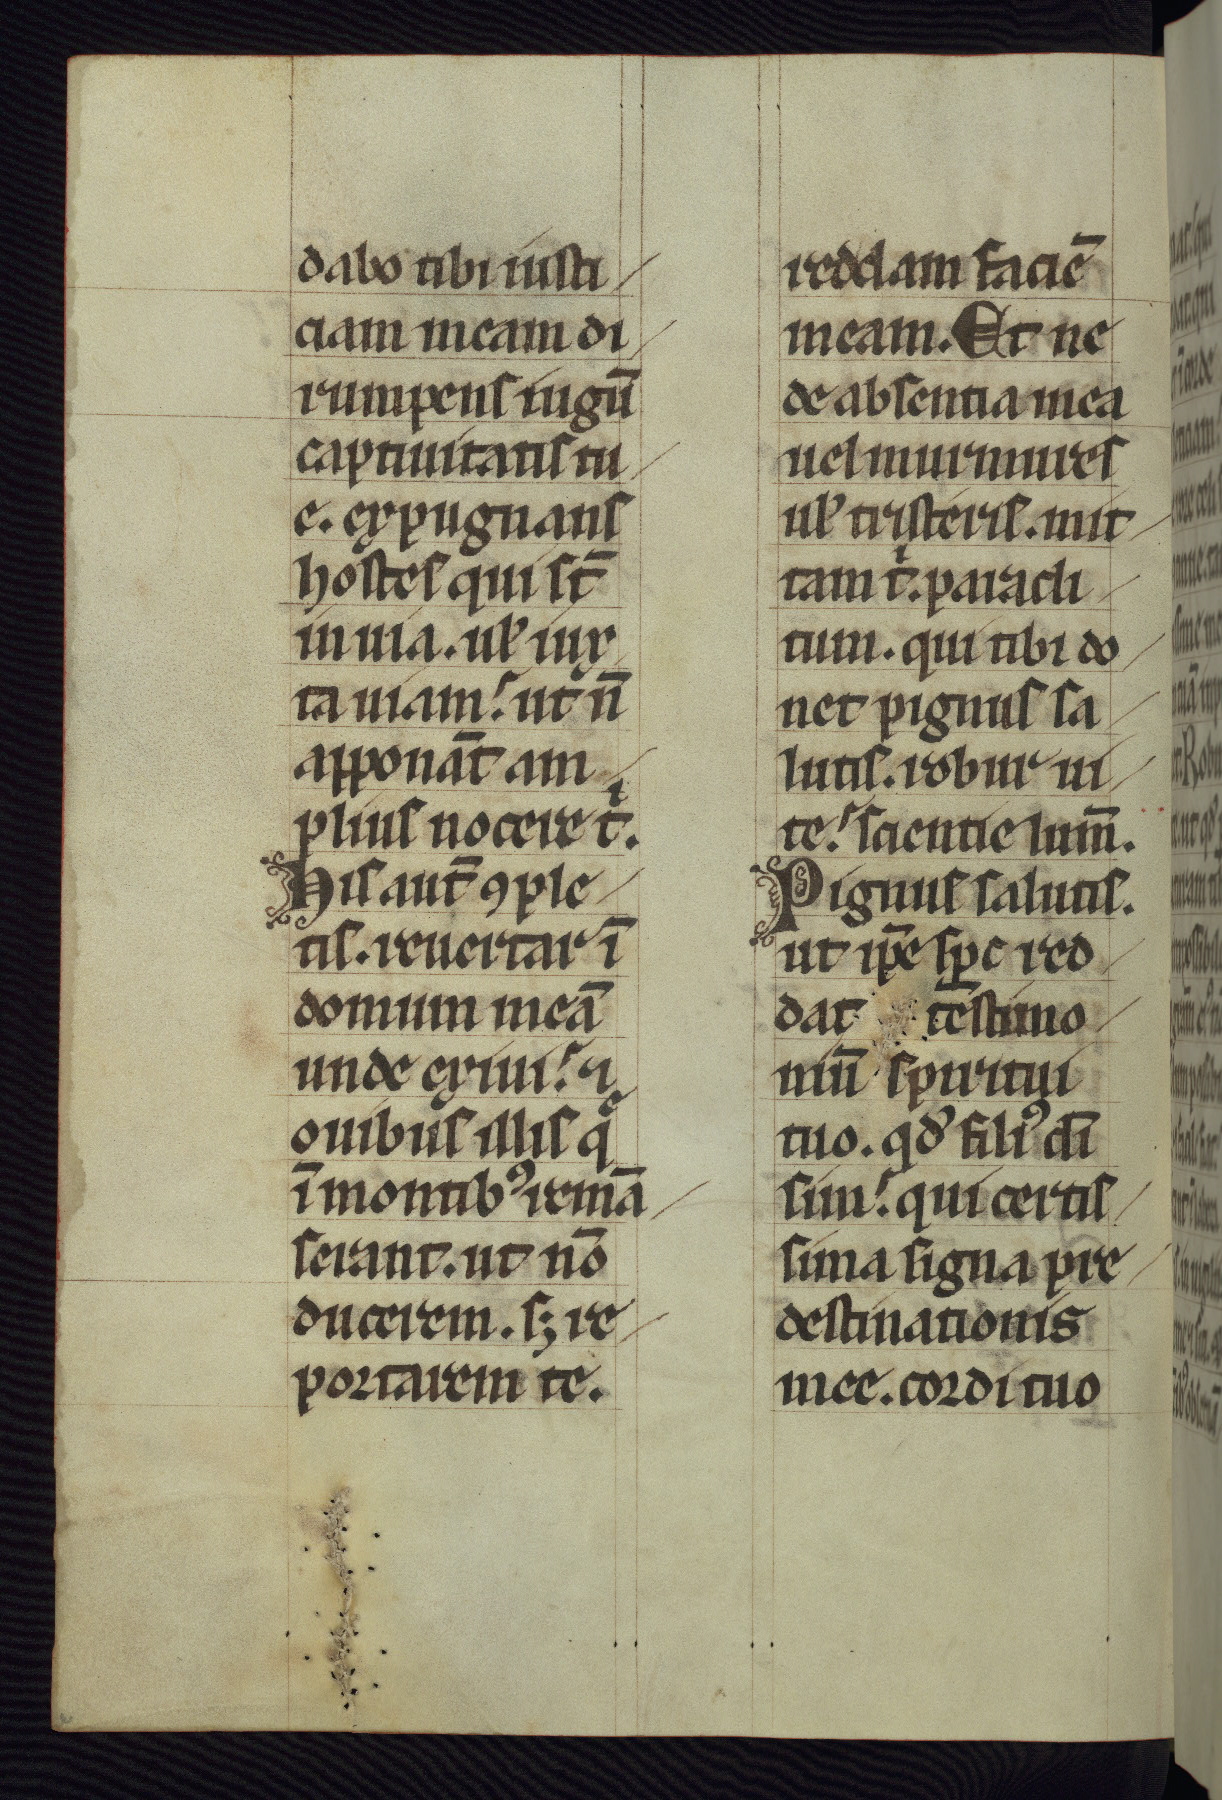 dabo tibi iusti
ciam meam di
rumpens iugū
captiuitatis tu
e. expugnans
hostes qui st̄
in uia. ul̕ iux
ta uiam. ut n̄
apponāt am
plius nocere tⁱ.
His aut̄ ꝯple
tis. reuertar ī
domum meā
unde exiui. ⁊
ouibus illis qͤ
ī montibꝰ remā
serant. ut nō
ducerem. sꝫ re
portarem te.
reddam faciē
meam. Et ne
de absentia mea
uel murmures
ul̕ tristeris. mit
tam tⁱ. paracli
tum. qui tibi do
net pignus sa
lutis. robur ui
te. scientie lum̄.
Pignus salutis.
ut ip̄e sp̄c red
dat tēstimo
niū spiritui
tuo. qd̕ filiꝰ di̅
sim. qui certis
sima signa pre
destinationis
mee. cordi tuo